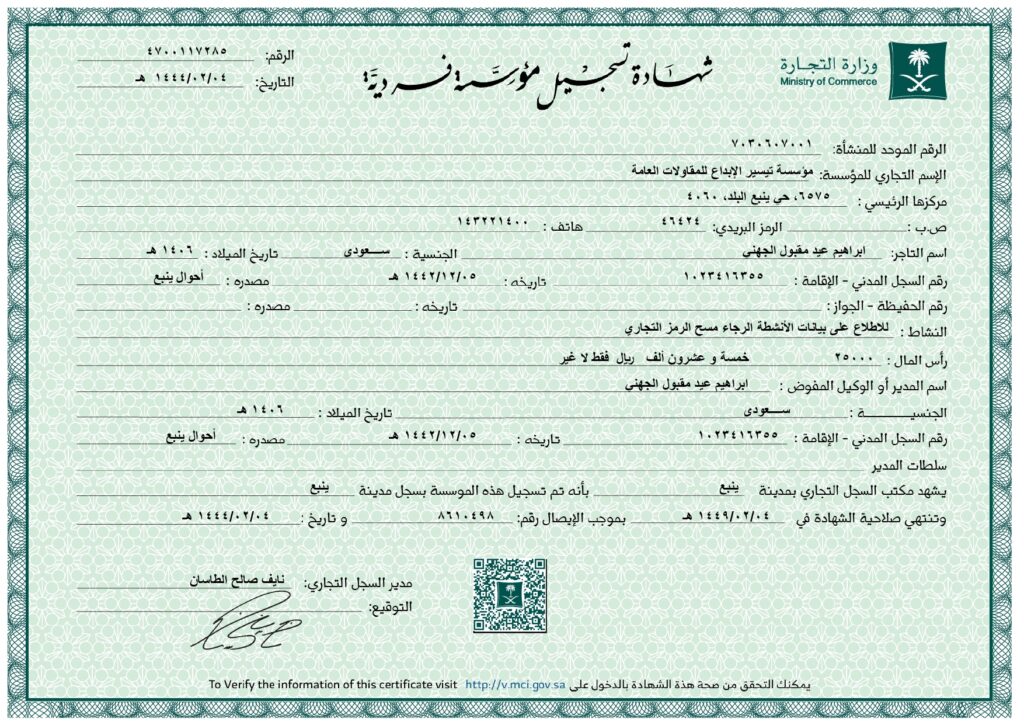 وزارة التجارة
Ministry of Commerce
شهادة تسجيل مؤسسة فردية
الرقم: ٤٧٠٠١١٧٢٨٥
التاريخ: ١٤٤٤/٠٢/٠٤ هـ
الرقم الموحد للمنشأة: ٧٠٣٠٦٠٧٠٠١
الإسم التجاري للمؤسسة: مؤسسة تيسير الإبداع للمقاولات العامة
مركزها الرئيسي : ٦٥٧٥، حي ينبع البلد، ٤٠٦٠
ص.ب : الرمز البريدي: ٤٦٤٢٤ هاتف : ١٤٣٢٢١٤٠٠
اسم التاجر: ابراهيم عيد مقبول الجهني الجنسية : سـعودى تاريخ الميلاد : ١٤٠٦ هـ
رقم السجل المدني - الإقامة : ١٠٢٣٤١٦٣٥٥ تاريخه : ١٤٤٢/١٢/٠٥ هـ مصدره : أحوال ينبع
رقم الحفيظة - الجواز : تاريخه : مصدره :
النشاط : للاطلاع على بيانات الأنشطة الرجاء مسح الرمز التجاري
رأس المال : ٢٥٠٠٠ خمسة و عشرون ألف ريال فقط لا غير
اسم المدير أو الوكيل المفوض : ابراهيم عيد مقبول الجهني
الجنسيـــــــة : سـعودى تاريخ الميلاد : ١٤٠٦ هـ
رقم السجل المدني - الإقامة : ١٠٢٣٤١٦٣٥٥ تاريخه : ١٤٤٢/١٢/٠٥ هـ مصدره : أحوال ينبع
سلطات المدير
يشهد مكتب السجل التجاري بمدينة ينبع بأنه تم تسجيل هذه الموسسة بسجل مدينة ينبع
وتنتهي صلاحية الشهادة في ١٤٤٩/٠٢/٠٤ هـ بموجب الإيصال رقم: ٨٦١٠٤٩٨ و تاريخ : ١٤٤٤/٠٢/٠٤ هـ
مدير السجل التجاري: نايف صالح الطاسان
التوقيع:
يمكنك التحقق من صحة هذة الشهادة بالدخول على http://v.mci.gov.sa To Verify the information of this certificate visit